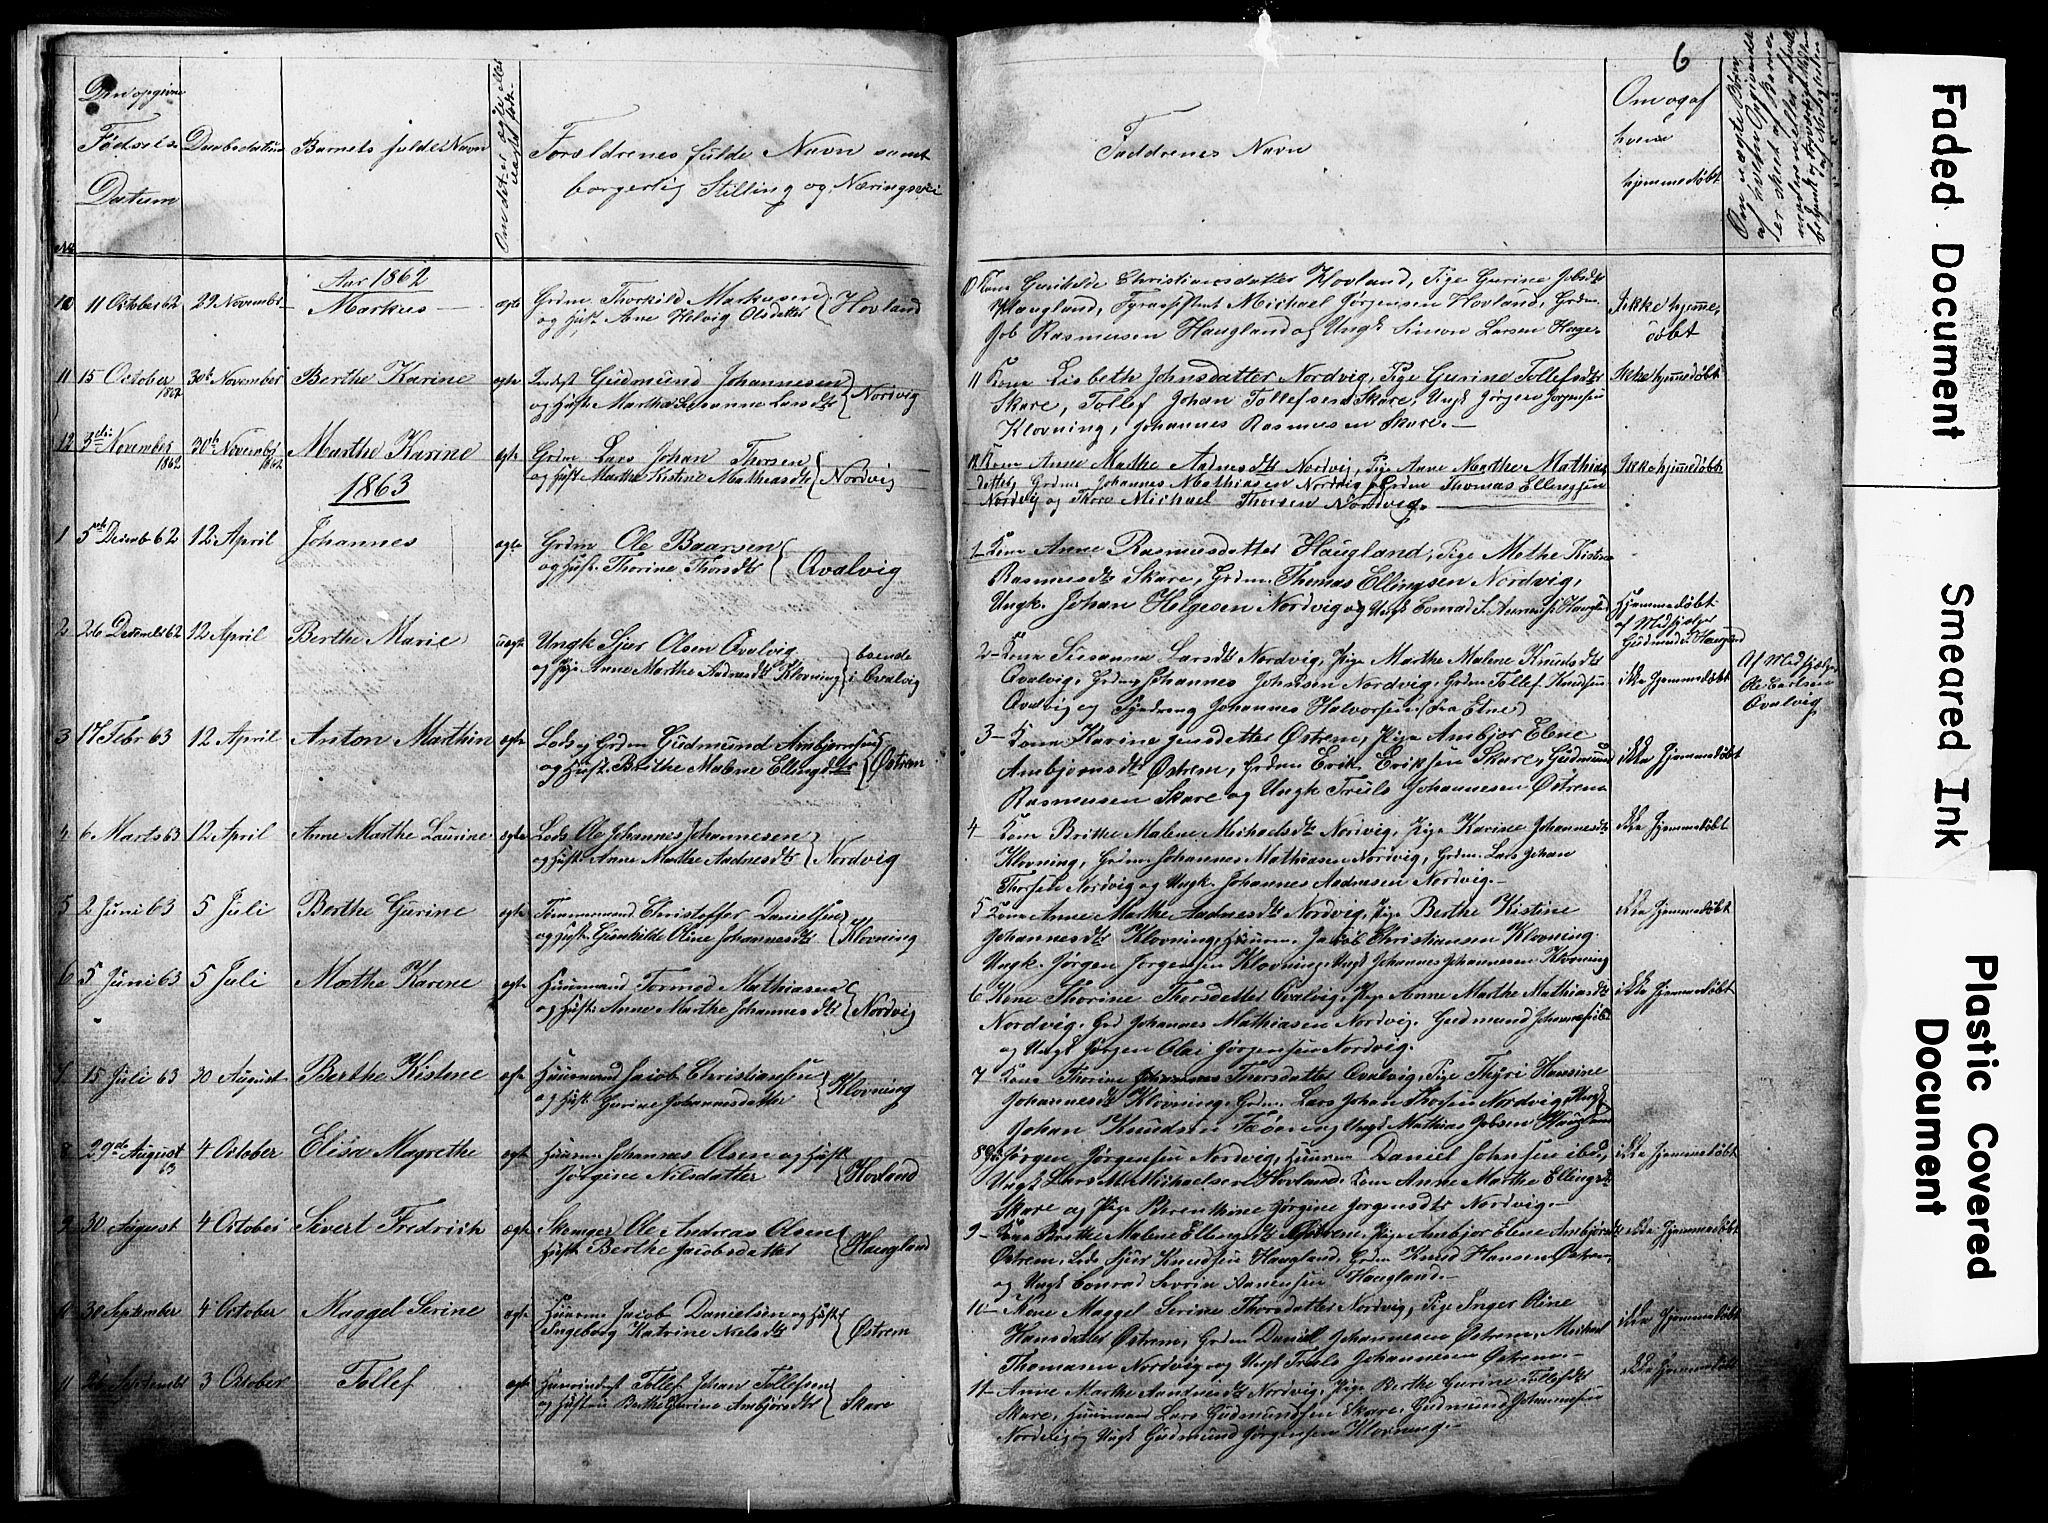 6
Den opgivne
Fødsels
Datum
Daabsdatum
Barnets fulde Navn
Om det er ægte eller
uægte født.
Forældrenes fulde Navn samt
borgerlig Stilling og Næringsvei
Faddrenes Navn
Om og af
hvem
hjemmedøbt
No
Aar 1862
10 11 October 62 29 November Markus ægte Grdm. Thorkild Markusen
og Hust. Ane Helvig Olsdatter Hovland
10 Kone Gunilde Christiansdatter Hovland, Pige Gurine Jobsdtr
Haugland, Michael Jørgensen Hovland, Grdm.
Job Rasmusen Haugland og Ungk Simon Larsen Hage-
Ikke hjemme-
døbt
11 15 October 1862 30te November Berthe Karine ægte Gudmund Johannesen
og Hust. Martha Susanne Larsdtr Nordvig
11 Kone Lisbeth Johnsdatter Nordvig, Pige Gurine Tollefsdtr
Skare, Tollef Johan Tollefsen Skare, Ungk Jørgen Jørgensen
Klovning, Johannes Rasmusen Skare.
Ikke hjemmedøbt
12 3die November 1862 30te November 1862 Marthe Karine ægte Grdm. Lars Johan Thorsen
og Hust Marthe Kistine Mathiasdtr Nordvig
12 Kone Anne Marthe Aadnesdtr Nordvig, Pige Anne Marthe Mathias
datter, Grdm. Johannes Mathiasen Nordvig, Grdm Thomas Ellingsen
Nordvig og Michael Thorsen Nordvig.
Ikke hjemmedøbt
1863
1 5te Decemb 62 12 April Johannes ægte Grdm Ole Baarsen
og Hust. Thorine Thorsdtr Qvalvig
1 Kone Anne Rasmusdatter Haugland, Pige Methe Kistine
Rasmusdtr Skare, Grdm. Thomas Ellingsen Nordvig,
Ungk. Johan Helgesen Nordvig og Ungk Conrad S. Haugland
Hjemmedøbt
af Medhjælper
Gudmund Haugland
2 26 Decembr 62 12 April Berthe Marie uægte Ungk Sjur Olsen Qvalvig
og Pige Anne Marthe Aadnesdtr Klovning boende
i Qvalvig
2 Kone Susanna Larsdtr Nordvig, Pige Marthe Malene Knudsdtr
Qvalvig, Grdm Johannes Johnsen Nordvig, Grdm Tollef Knudsen
Qvalvig og Johannes Halvorsen (fra Etne)
ikke hjemmedøbt
Af Medhjælper
Ole Carlsen
Qvalvig
3 17 Febr 63 12 April Anton Marthin ægte Lods og Grdm Gudmund Ambjørnsen
og Hust. Brithe Malene Ellingsdtr Østrem
3 Kone Karine Jensdatter Østrem, Pige Ambjør Elene
Ambjørnsdtr Østrem, Grdm Erik Eriksen Skare, Gudmund
Rasmusen Skare og Ungk Truls Johannesen Østrem
ikke hjemmedøbt
4 6 Marts 63 12 April Anne Marthe Laurine ægte Lods Ole Johannes Johannesen
og Hust. Anne Marthe Aadnesdtr Nordvig
4 Kone Brithe Malene Michaelsdtr Nordvig, Pige Karine Johannesdtr
Klovning, Grdm Johannes Mathiasen Nordvig, Grdm. Lars Johan
Thorsen Nordvig og Ungk. Johannes Aadnesen Nordvig.
ikke hjemmedøbt
5 2 Juni 63 5 Juli Berthe Gurine ægte Tømmermand Christoffer Danielsen
og Hust. Gunhilde Oline Johannesdtr Klovning
5 Kone Anne Marthe Aadnesdtr Nordvig, Pige Berthe Kistine
Johannesdtr Klovning, Huusm. Jacob Christiansen Klovning
Ungk. Jørgen Jørgensen Klovning, Ungk Johannes Johannesen Klovning
ikke hjemmedøbt
6 5 Juni 63 5 Juli Marthe Karine ægte Huusmand Tormod Mathiasen
og Hust. Anne Marthe Johannesdtr Nordvig
6 Kone Thorine Thorsdatter Qvalvig, Pige Anne Marthe Mathiasdtr
Nordvig, Grd Johannes Mathiasen Nordvig, Gudmund Johannesen
og Ungk Jørgen Olai Jørgensen Nordvig.
ikke hjemmedøbt
7 15 Juli 63 30 August Berthe Kistine ægte Huusmand Jacob Christiansen
og Hust Gurine Johannesdatter Klovning
7 Kone Thorine Thorsdatter Qvalvig, Pige Thyri Hansine
Johannesdtr Klovning, Grdm. Lars Johan Thorsen Nordvig, Ungk
Johan Knudsen Fæøen og Ungk Mathias Jobsen Haugland
8 29de August 63 4 October Elisa Magrethe ægte Huusm Johannes Olsen og Hust
Jørgine Nilsdatter Hovland
8 Jørgen Jørgensen Nordvig, Huusm Daniel Johnsen ibd,
Ungk Lars M. Michaelsen Hovland, Kone Anne Marthe Ellingsdtr
Skare og Pige Berenthine Jørgine Jørgensdtr Nordvig.
ikke hjemmedøbt
9 30 August 4 October Sivert Fredrich ægte Ole Andreas Olsen
Hust Berthe Jacobsdatter Haugland
9 Kone Brithe Malene Ellingsdtr Østrem, Pige Ambjør Elene Ambjørnsdtr
Østrem, Lods Sjur Knudsen Haugland, Grdm Knud Hansen Østrem,
og Ungk Conrad Sevrin Aanensen Haugland.
ikke hjemmedøbt
10 30 September 4 October Maggel Serine ægte Huusm Jacob Danielsen og Hust
Ingeborg Katrine Nielsdtr Østrem
10 Kone Maggel Serine Thorsdatter Nordvig, Pige Inger Oline
Hansdatter Østrem, Grdm Daniel Johannesen Østrem, Michael
Thomasen Nordvig og Ungk Truls Johannesen Østrem
ikke hjemmedøbt
11 26 Septembr 3 October Tollef ægte Tollef Johan Tollefsen
og Hustru Berthe Gurine Ambjørnsdtr Skare
11 Anne Marthe Aadnesdtr Nordvig, Pige Berthe Gurine Tollefsdtr
Skare, Huusmand Lars Gudmundsen Skare, Gudmund Johannesen
Nordvig og Ungk Gudmund Jørgensen Klovning.
ikke hjemmedøbt
Faded Document
Smeared Ink
Plastic Covered
Document